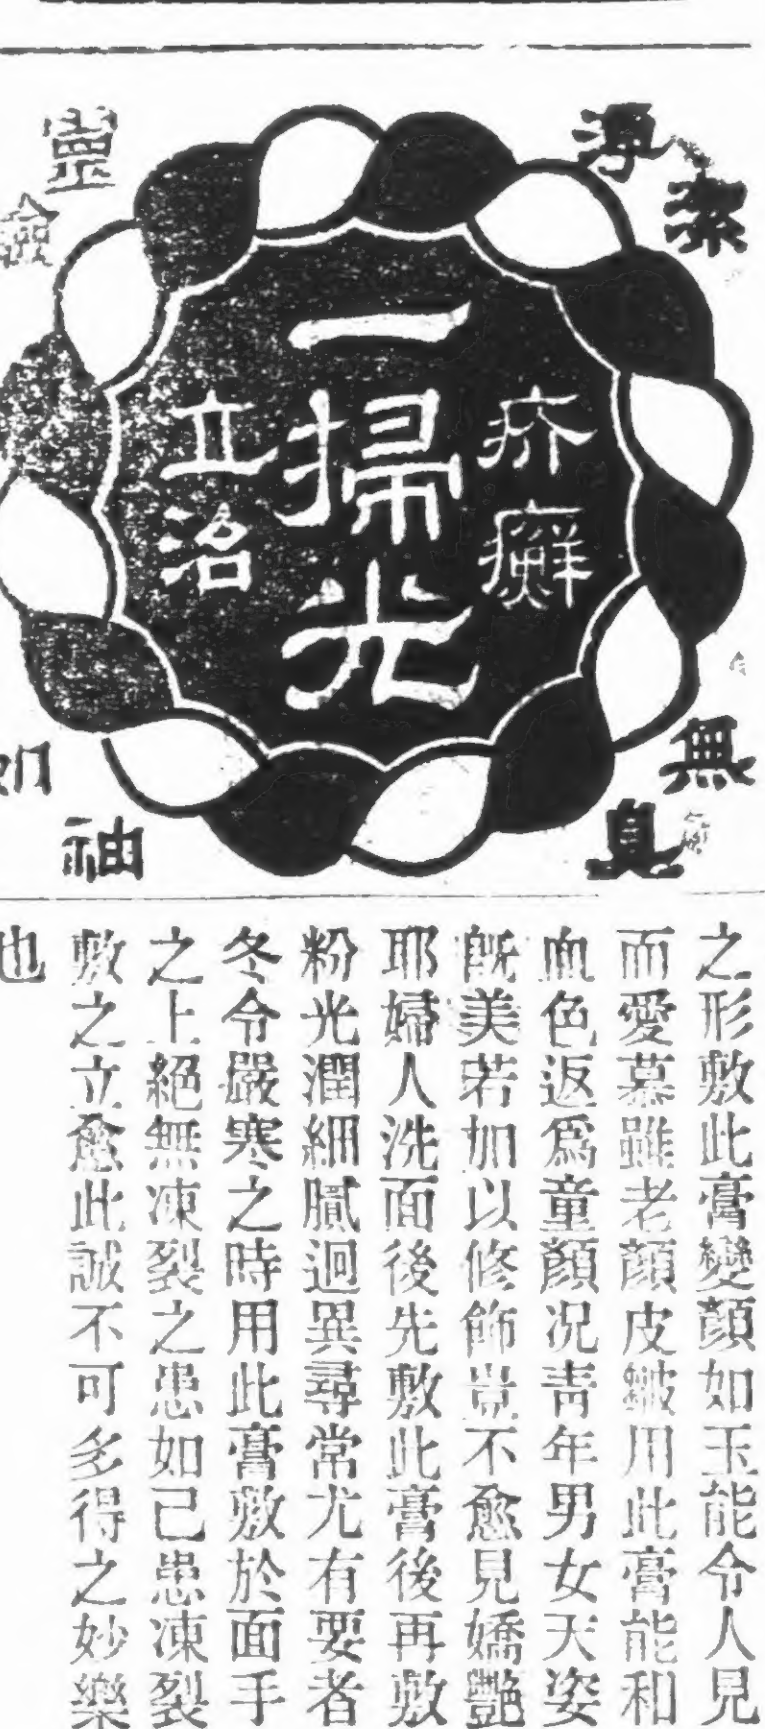 淨潔
疥癬
一掃光
立治
無臭
靈
神
之形敷此膏變顏如玉能令人見
而愛慕雖老顏皮皺用此膏能和
血色返爲童顏况靑年男女天姿
旣美若加以修飾豈不愈見嬌艷
耶婦人洗面後先敷此膏後再敷
粉光潤細膩迥異尋常尤有要者
冬令嚴寒之時用此膏敷於面手
之上絕無凍裂之患如己患凍裂
敷之立愈此誠不可多得之妙藥
也